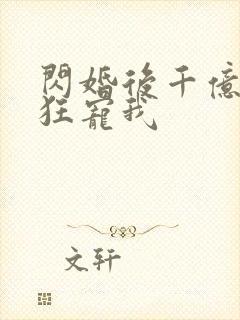 閃婚後千億
狂寵我
文軒